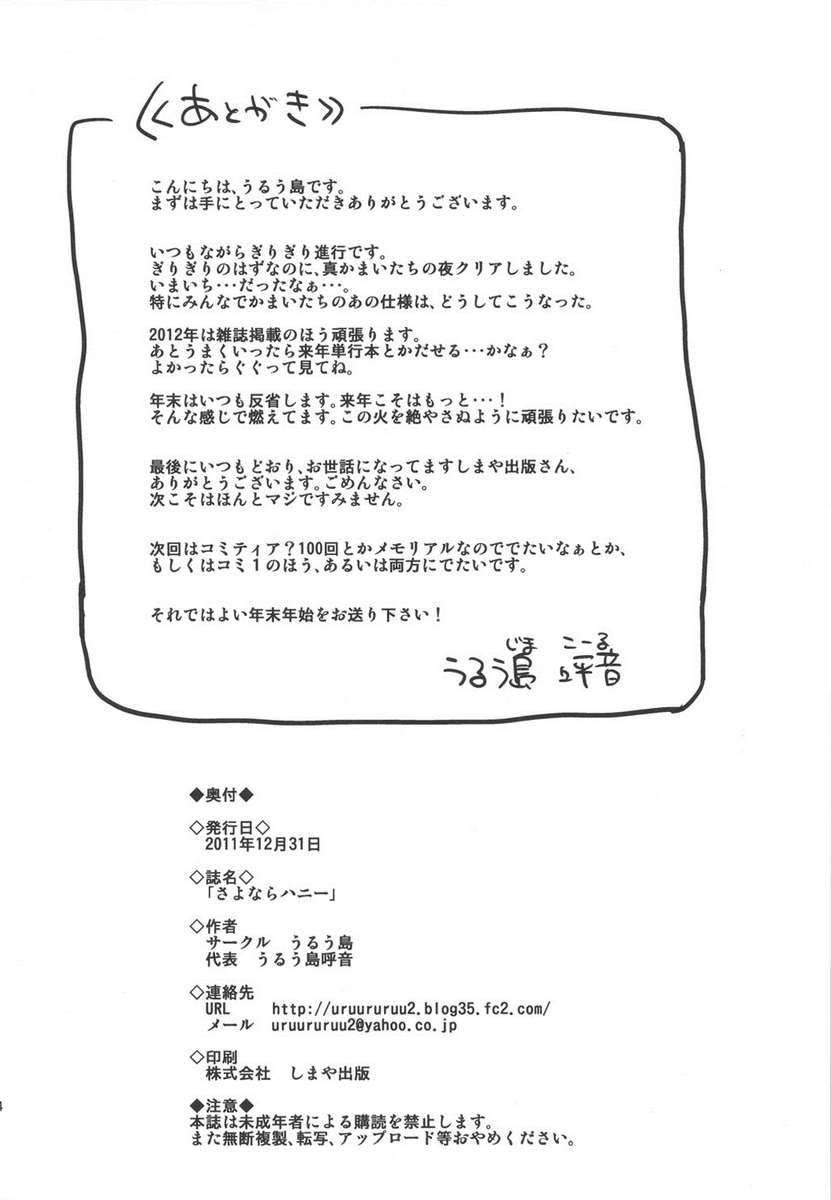 《あとがき》
こんにちは、うるう島です。
まずは手にとっていただきありがとうございます。
いつもながらぎりぎり進行です。
ぎりぎりのはずなのに、真かまいたちの夜クリアしました。
いまいち･･･だったなぁ･･･。
特にみんなでかまいたちのあの仕様は、どうしてこうなった。
2012年は雑誌掲載のほう頑張ります。
あとうまくいったら来年単行本とかだせる･･･かなぁ？
よかったらぐぐって見てね。
年末はいつも反省します。来年こそはもっと･･･！
そんな感じで燃えてます。この火を絶やさぬように頑張りたいです。
最後にいつもどおり、お世話になってますしまや出版さん、
ありがとうございます。ごめんなさい。
次こそはほんとマジですみません。
次回はコミティア？100回とかメモリアルなのででたいなぁとか、
もしくはコミ１のほう、あるいは両方にでたいです。
それではよい年末年始をお送り下さい！
じま こーる
うるう島 呼音
◆奥付◆
◇発行日◇
2011年12月31日
◇誌名◇
「さよならハニー」
◇作者
サークル うるう島
代表 うるう島呼音
◇連絡先
URL http://uruururuu2.blog35.fc2.com/
メール uruururuu2@yahoo.co.jp
◇印刷
株式会社 しまや出版
◆注意◆
本誌は未成年者による購読を禁止します。
また無断複製、転写、アップロード等おやめください。